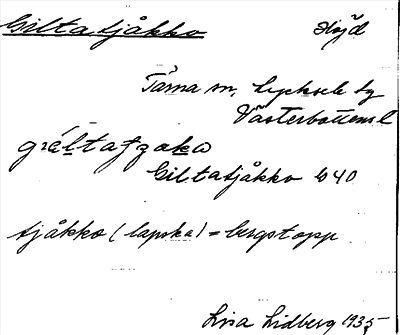 Giltatjåkko Höjd
Tärna sn, Lycksele tg
Västerbottens l
Giltatjåkko b 40
tjåkko (lapska) = bergstopp
Lisa Lidberg 1935